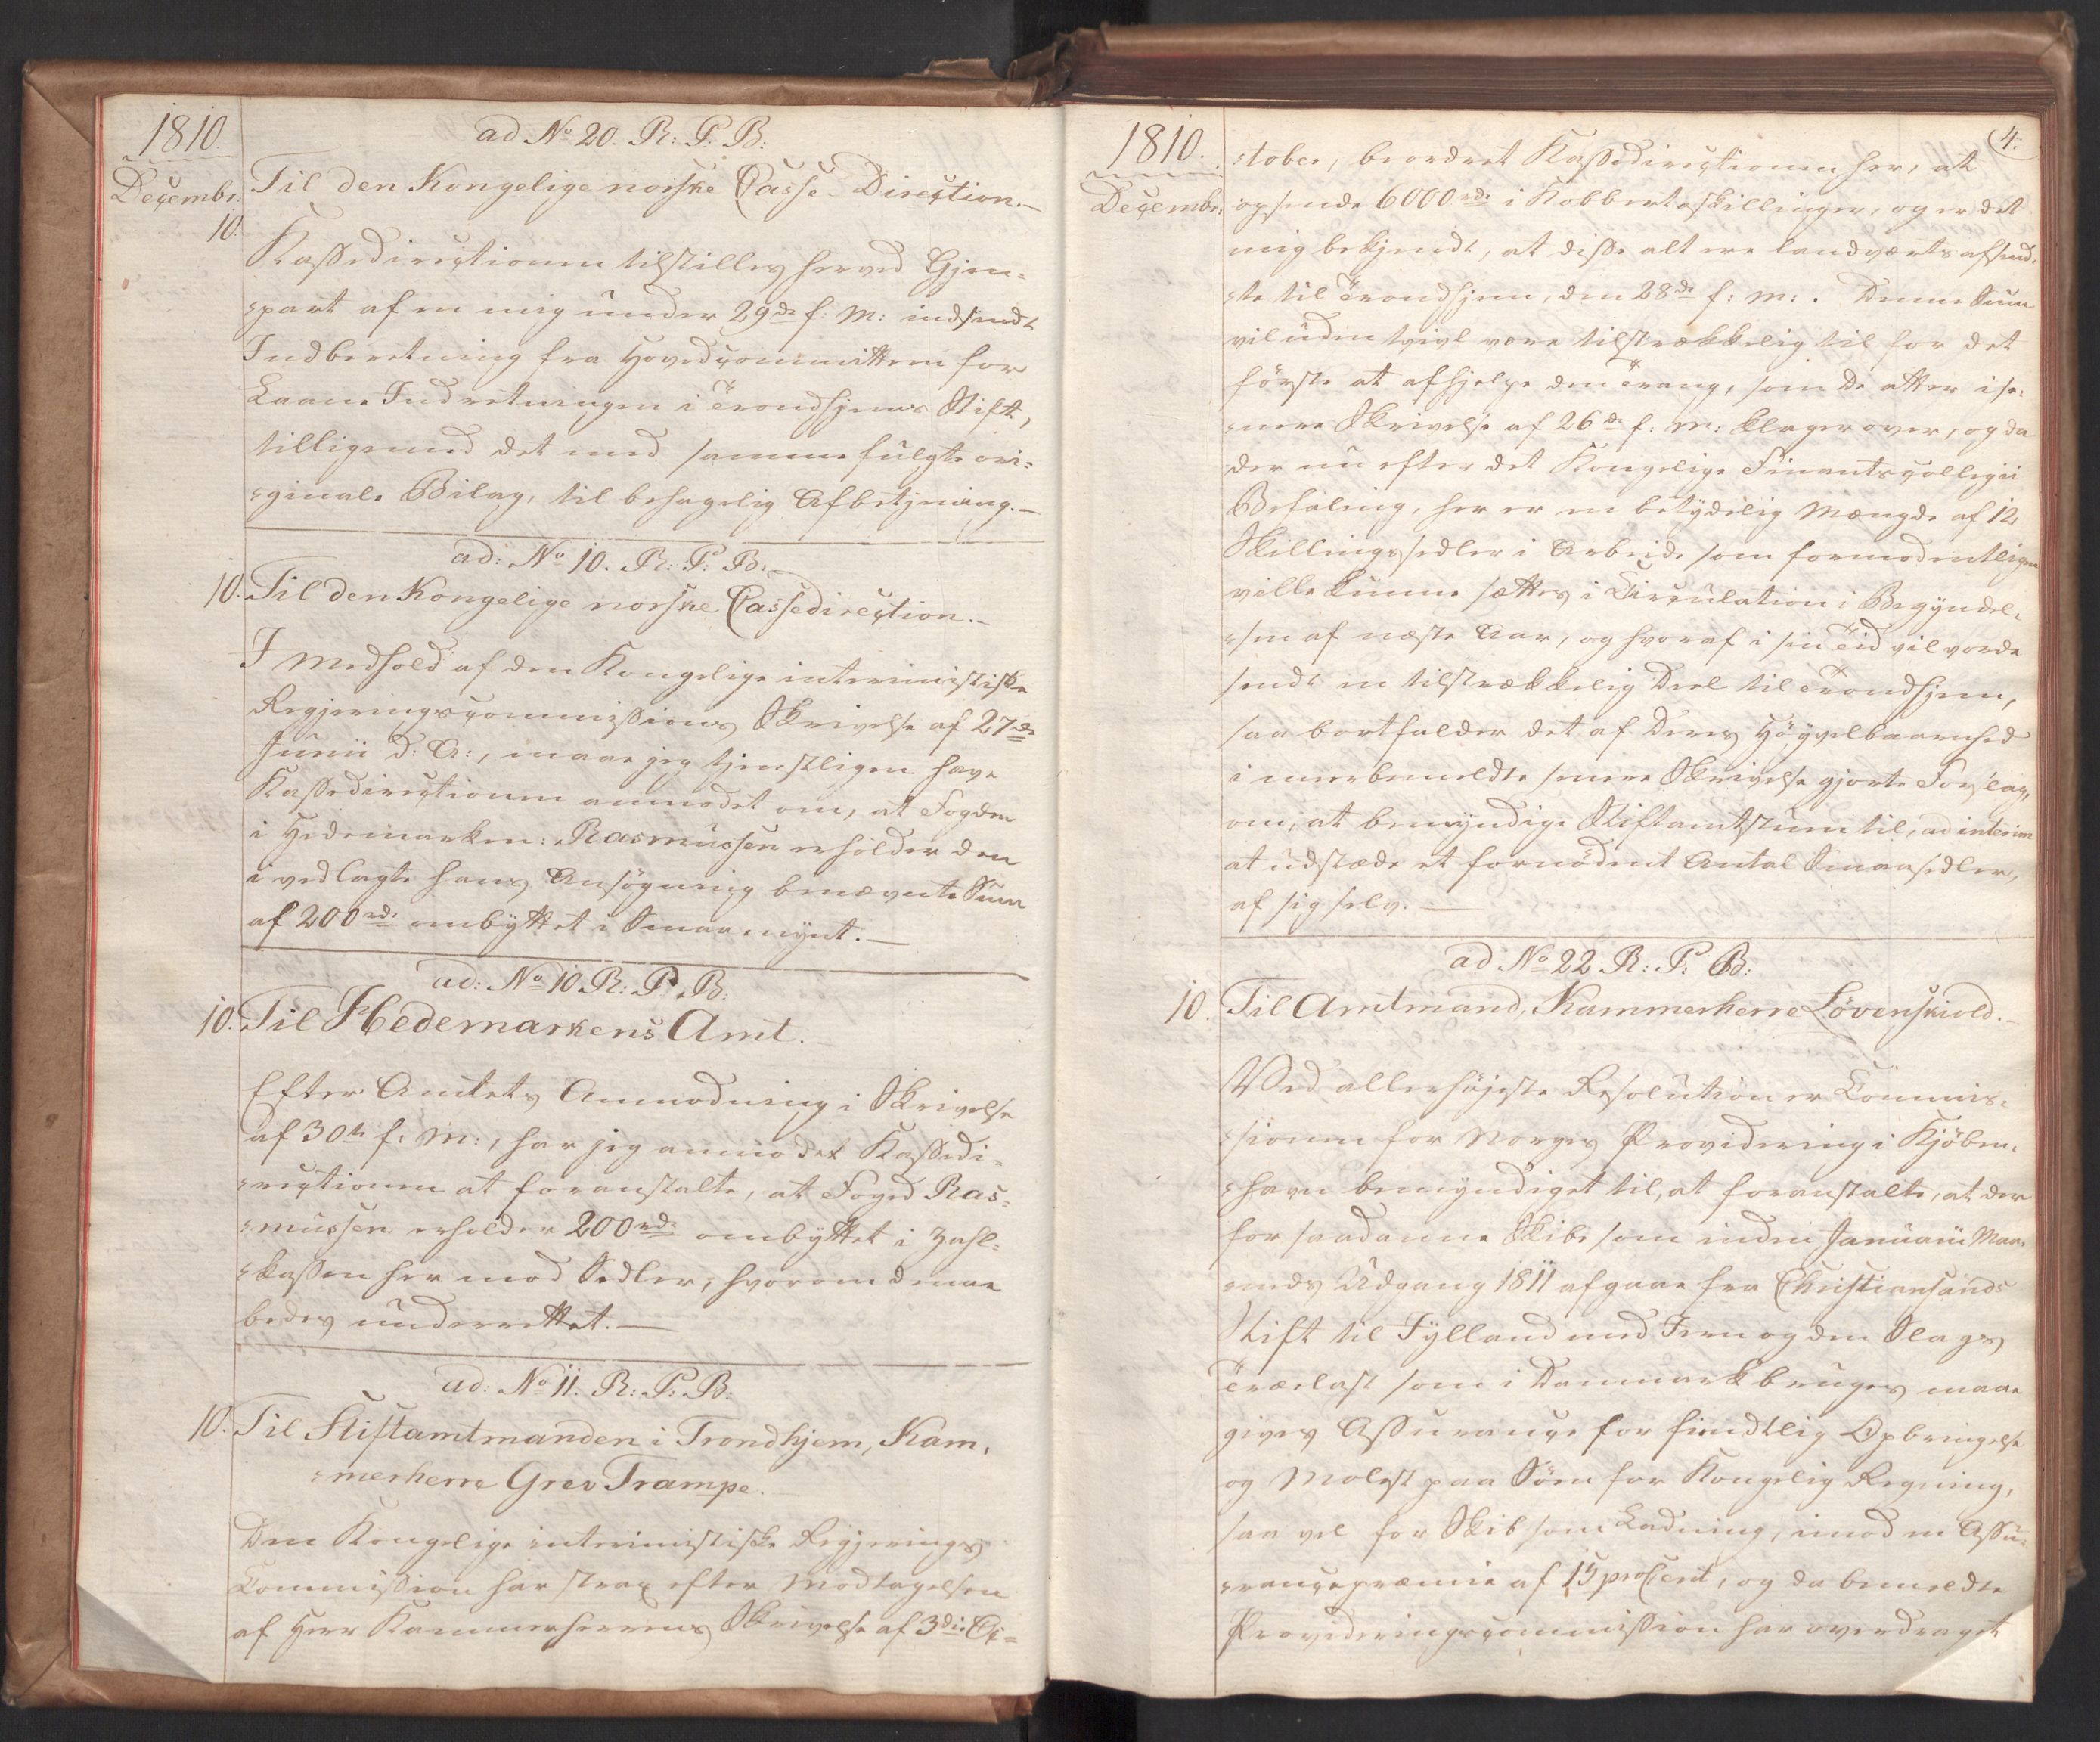 1810.
Decembr:
ad No 20. R: P: B:
Til den Kongelige norske Casse-Direction.-
10.
Kassedirectionen tilstilles herved Gjen-
-part af en mig under 29de f: M: indsendt
Indberetning fra Hovedcommitteen for
Laane-Indretningen i Trondhjems Stift,
tilligemed det med samme fulgte ori-
-ginale Bilag, til behagelig Afbetjening.-
ad: No 10. R: P: B:
10. Til den Kongelige norske Cassedirection.-
I Medhold af den Kongelige interimistiske
Regjeringscommissions Skrivelse af 27de
Junii d: A:, maae jeg tjenstligen have
Kassedirectionen anmodet om, at Fogden
i Hedemarken: Rasmussen erholder den
i vedlagte hans Ansøgning benævnte Sum
af 200 rd. ombyttet i Smaamynt.-
ad: No 10 R: P: B:
10. Til Hedemarkens Amt.
Efter Amtets Anmodning i Skrivelse
af 30te f: M:, har jeg anmodet Kassedi-
-rectionen at foranstalte, at Foged Ras-
-mussen erholder 200 rd. ombyttet i Zahl-
-kassen her mod Sedler, hvorom denne
bedes underrettet.-
ad: No 11. R: P: B:
10. Til Stiftamtmanden i Trondhjem, Kam-
-merherre Grev Trampe.
Den Kongelige interimistiske Regjerings
Commission har strax efter Modtagelsen
af Herr Kammerherrens Skrivelse af 3die Oc-
1810.
Decembr:
4.
-tober, beordret Kassedirectionen her, at
opsende 6000 rd. i Kobbertoskillinger, og er det
mig bekjendt, at disse alt ere landværts afsend-
-te til Trondhjem, den 28de f: M:. Denne Sum
vil uden tvivl være tilstrækkelig til for det
første at afhjelpe den Trang, som De atter i se-
-nere Skrivelse af 26de f: M: klager over, og da
der nu efter det Kongelige Finantscollegii
Befaling, her er en betydelig Mængde af 12
Skillingssedler i Arbeide som formodentligen
ville kunne sættes i Circulation i Begyndel-
-sen af næste Aar, og hvoraf i sin Tid vil vorde
sendt en tilstrækkelig Deel til Trondhjem,
saa bortfalder det af Deres Høyvelbaarenhed
i meerbemeldte senere Skrivelse gjorte Forslag,
om, at bemyndige Stiftamtstuen til, ad interim
at udstæde et fornødent Antal Smaasedler,
af sig selv.-
ad No 22 R: P: B:
10. Til Amtmand, Kammerherre Løvenskiold.-
Ved allerhøjeste Resolution er Commis-
-sionen for Norges Providering i Kjøben-
-havn bemyndiget til, at foranstalte, at der
for saadanne Skibe som inden Januarii Maa-
-neds Udgang 1811 afgaae fra Christiansands
Stift til Jylland med Jern og den Slags
Trælast som i Danmark bruges maae
gives Assurance for fiendtlig Opbringelse
og Molest paa Søen for Kongelig Regning,
saa vel for Skib som Ladning, imod en Assu-
-rancepræmie af 15 proCent, og da bemeldte
Provideringscommission har overdraget